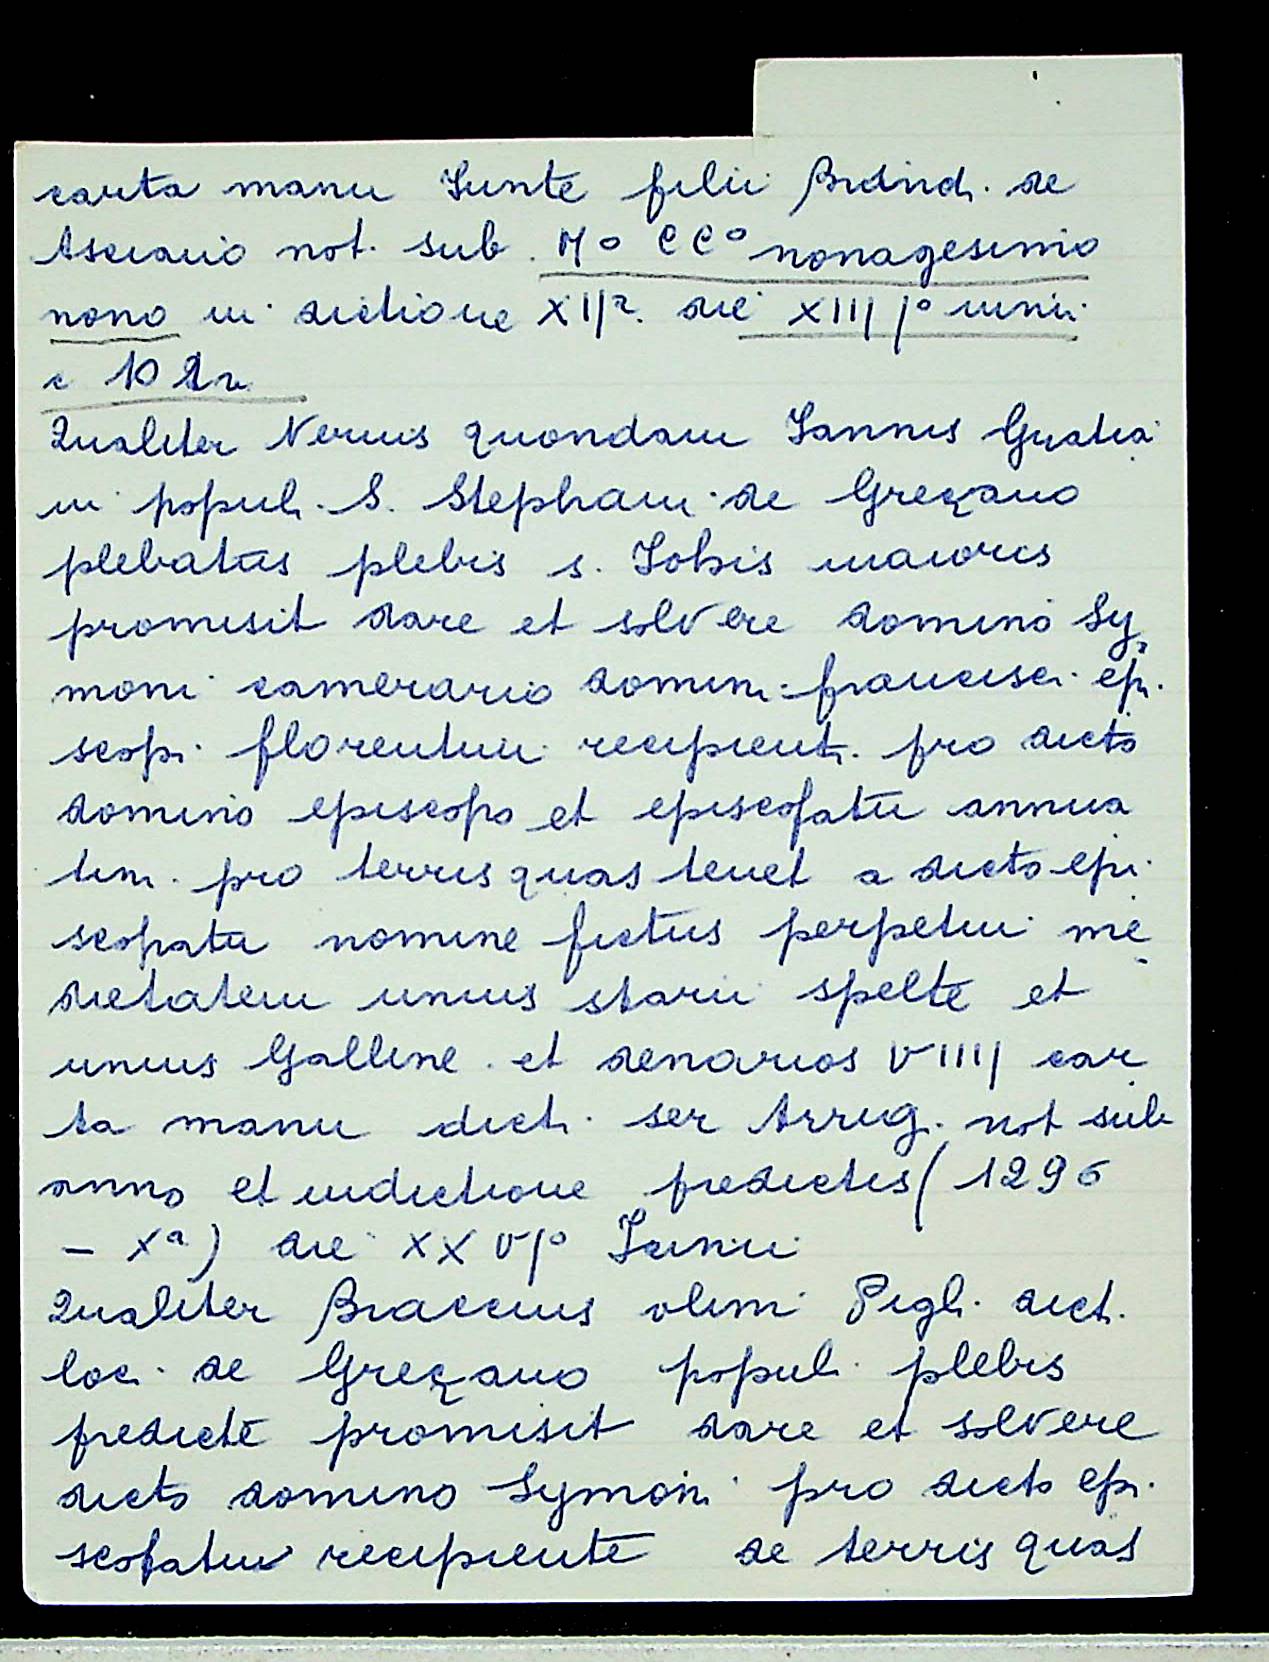 carta manu Iunte filii Bidindi. de
Asciano not. sub. M° CC° nonagesimo
nono indictione XIIa. die XIIII° iunii
c 102 r
Qualiter Nerius quondam Iannis Gratia
in popul. S. Stephani de Greçano
plebatus plebis s. Iohis maioris
promisit dare et solvere domino Sy
moni camerario domini francisci epi
scopi florentini recipienti pro dicto
domino episcopo et episcopatu annua
tim pro terris quas tenet a dicto epi
scopatu nomine fictus perpetui me
dietatem unius starii spelte et
unius Galline et denarios VIIII car
ta manu dicti ser Arrig. not sub
anno et indictione predictis (1296
- Xa) die XXVI° Iunii
Qualiter Braccius olim Pigli dict.
loci de Greçano popul. plebis
predicte promisit dare et solvere
dicto domino Symoni pro dicto epi
scopatu recipiente de terris quas